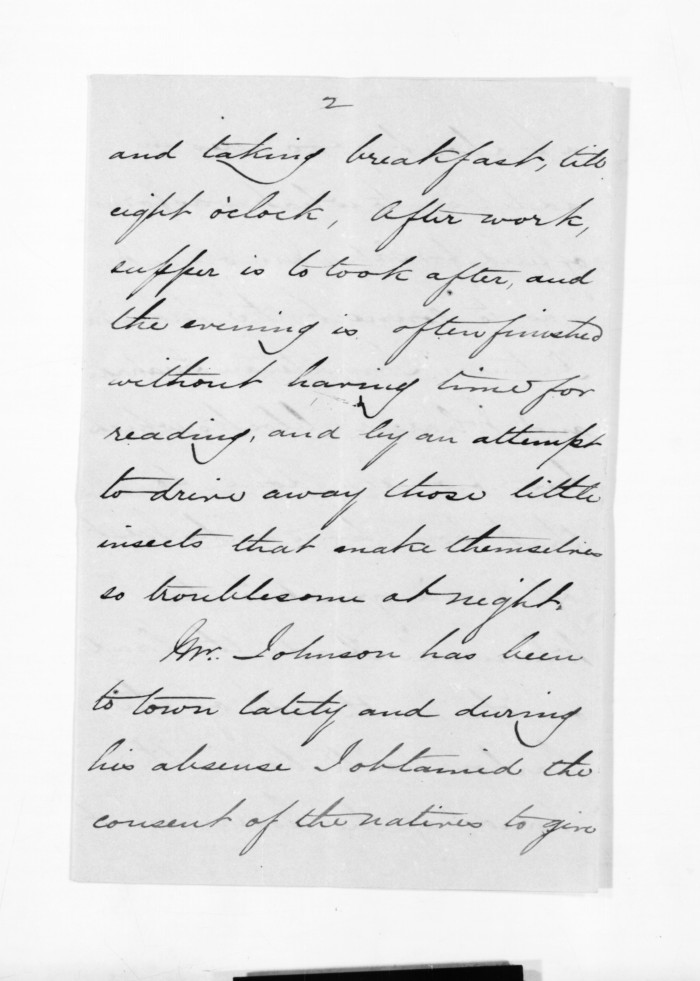 2
and taking breakfast, till
eight o'clock, After work,
supper is to took after, and
the evening is often finished
without having time for
reading, and by an attempt
to drive away those little
insects that make themselves
so troublesome at night.
Mr. Johnson has been
to town lately and during
his absense I obtained the
consent of the natives to give